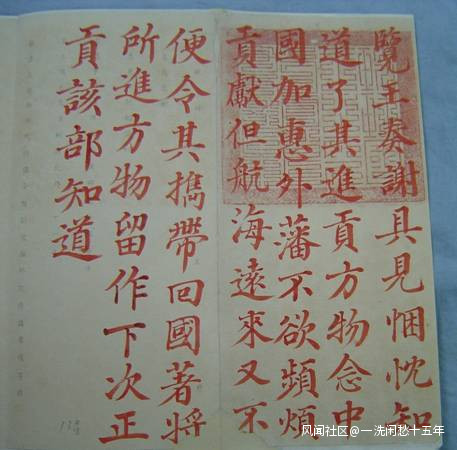 覽王奏謝具見悃忱知
道了其進貢方物念中
國加惠外藩不欲頻煩
貢獻但航海遠來又不
便令其擕帶回國著將
所進方物留作下次正
貢該部知道
风闻社区@一洗闲愁十五年